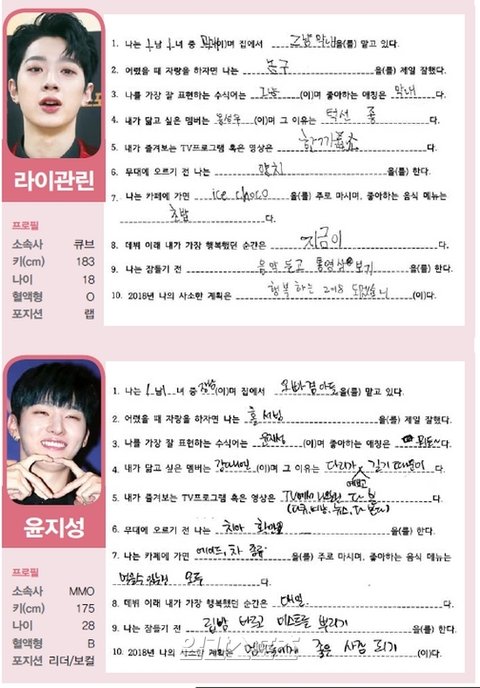 라이관린
프로필
소속사 큐브
키(cm) 183
나이 18
혈액형 O
포지션 랩
1. 나는 1남 1녀 중 막내이며 집에서 그냥 막내을(를) 맡고 있다.
2. 어렸을 때 자랑을 하자면 나는 농구을(를) 제일 잘했다.
3. 나를 가장 잘 표현하는 수식어는 (이)며 좋아하는 애칭은 막내다.
4. 내가 닮고 싶은 멤버는 옹성우(이)며 그 이유는 턱선 다.
5. 내가 즐겨보는 TV프로그램 혹은 영상은 한끼줍쇼다.
6. 무대에 오르기 전 나는 양치을(를) 한다.
7. 나는 카페에 가면 ice choco을(를) 주로 마시며, 좋아하는 음식 메뉴는
초밥다.
8. 데뷔 이래 내가 가장 행복했던 순간은 지금이다.
9. 나는 잠들기 전 음악 듣고 동영상 보기을(를) 한다.
10. 2018년 나의 사소한 계획은 행복하는 2018 (이)다.
윤지성
프로필
소속사 MMO
키(cm) 175
나이 28
혈액형 B
포지션 리더/보컬
1. 나는 1남 녀 중 장남(이)며 집에서 을(를) 맡고 있다.
2. 어렸을 때 자랑을 하자면 나는 을(를) 제일 잘했다.
3. 나를 가장 잘 표현하는 수식어는 윤지성(이)며 좋아하는 애칭은 다.
4. 내가 닮고 싶은 멤버는 강다니엘(이)며 그 이유는 다리가 예쁘고 길기 때문이다.
5. 내가 즐겨보는 TV프로그램 혹은 영상은 다.
6. 무대에 오르기 전 나는 치아 확인을(를) 한다.
7. 나는 카페에 가면 에이드, 차 종류을(를) 주로 마시며, 좋아하는 음식 메뉴는
모두다.
8. 데뷔 이래 내가 가장 행복했던 순간은 매일다.
9. 나는 잠들기 전 립밤 바르고 미스트를 뿌리기을(를) 한다.
10. 2018년 나의 사소한 계획은 좋은 사람 되기(이)다.